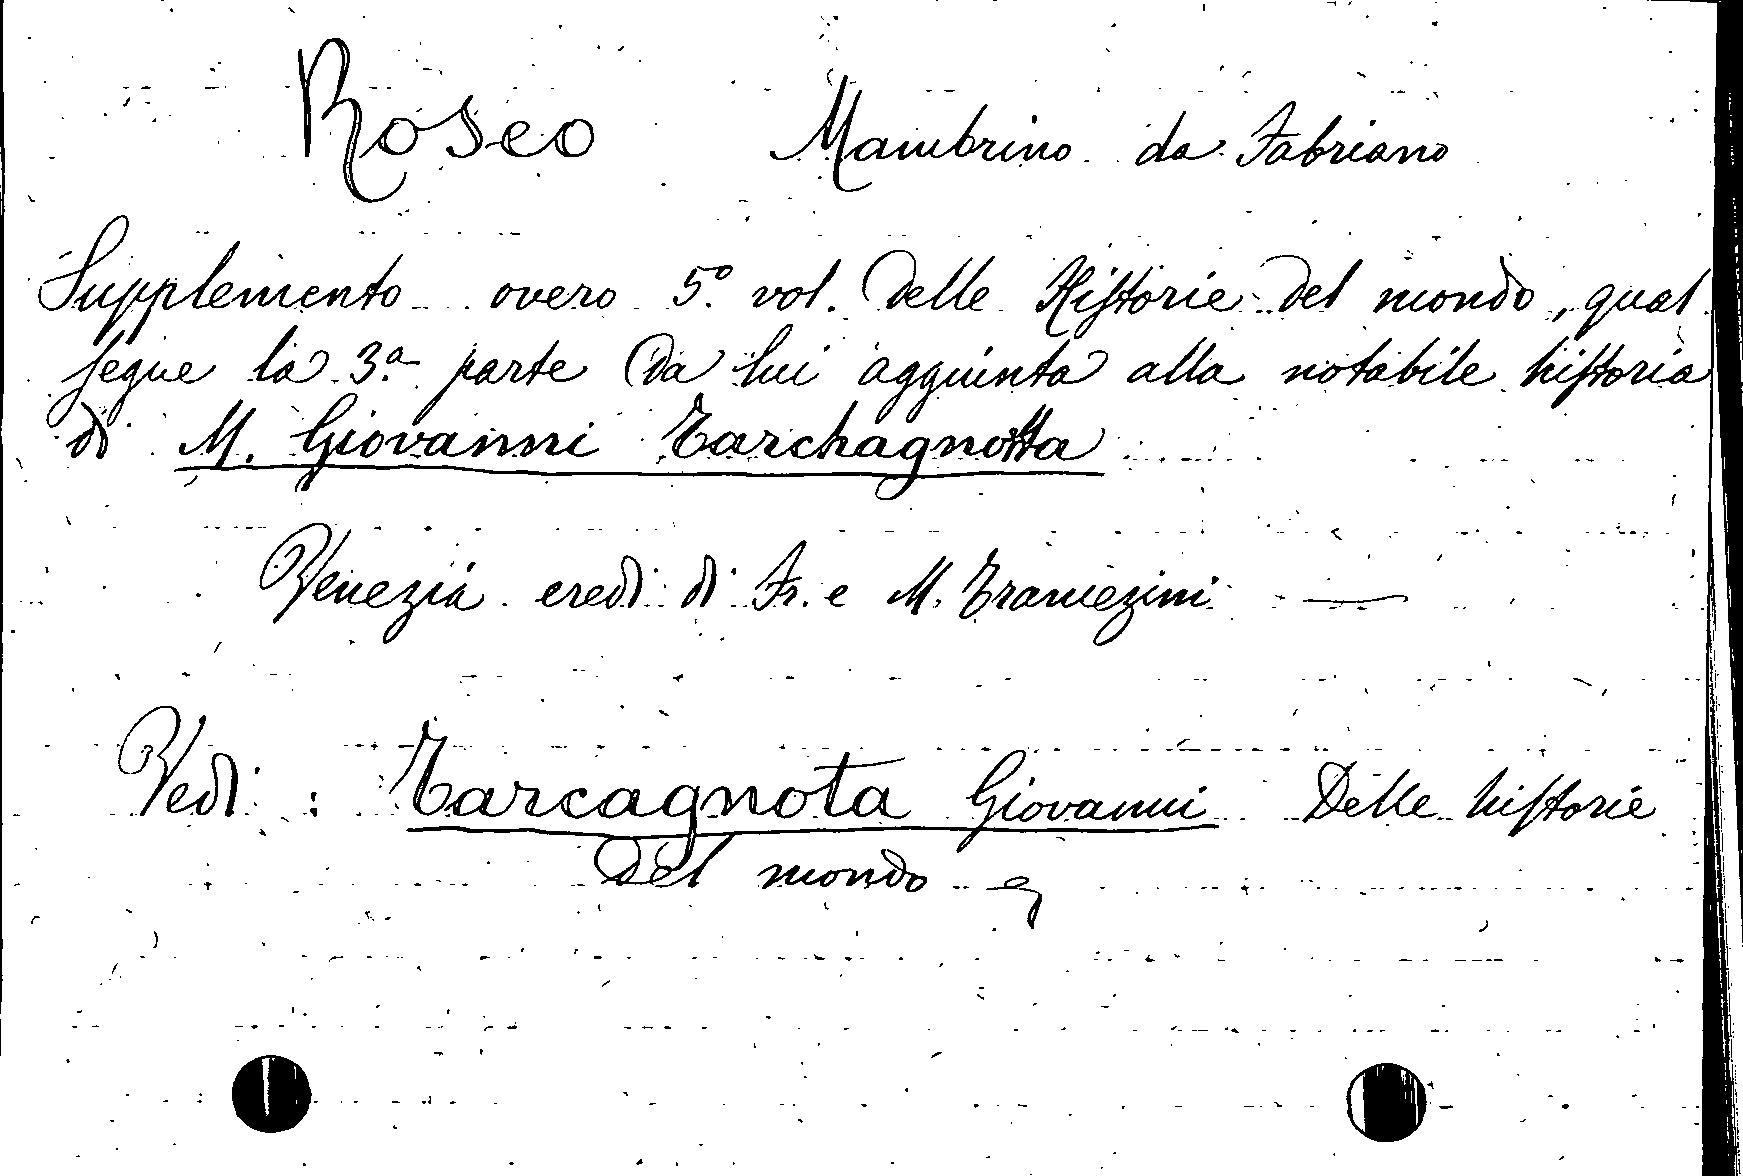 Roseo Mambrino da Fabriano
Supplemento overo 5º vol. delle Historie del mondo, qual
segue la 3.ª parte da lui aggiunta alla notabile historia
di M. Giovanni Tarchagnotta
Venezia eredi di Fr. e M. Tramezini —
Vedi: Tarcagnota Giovanni Delle historie
del mondo